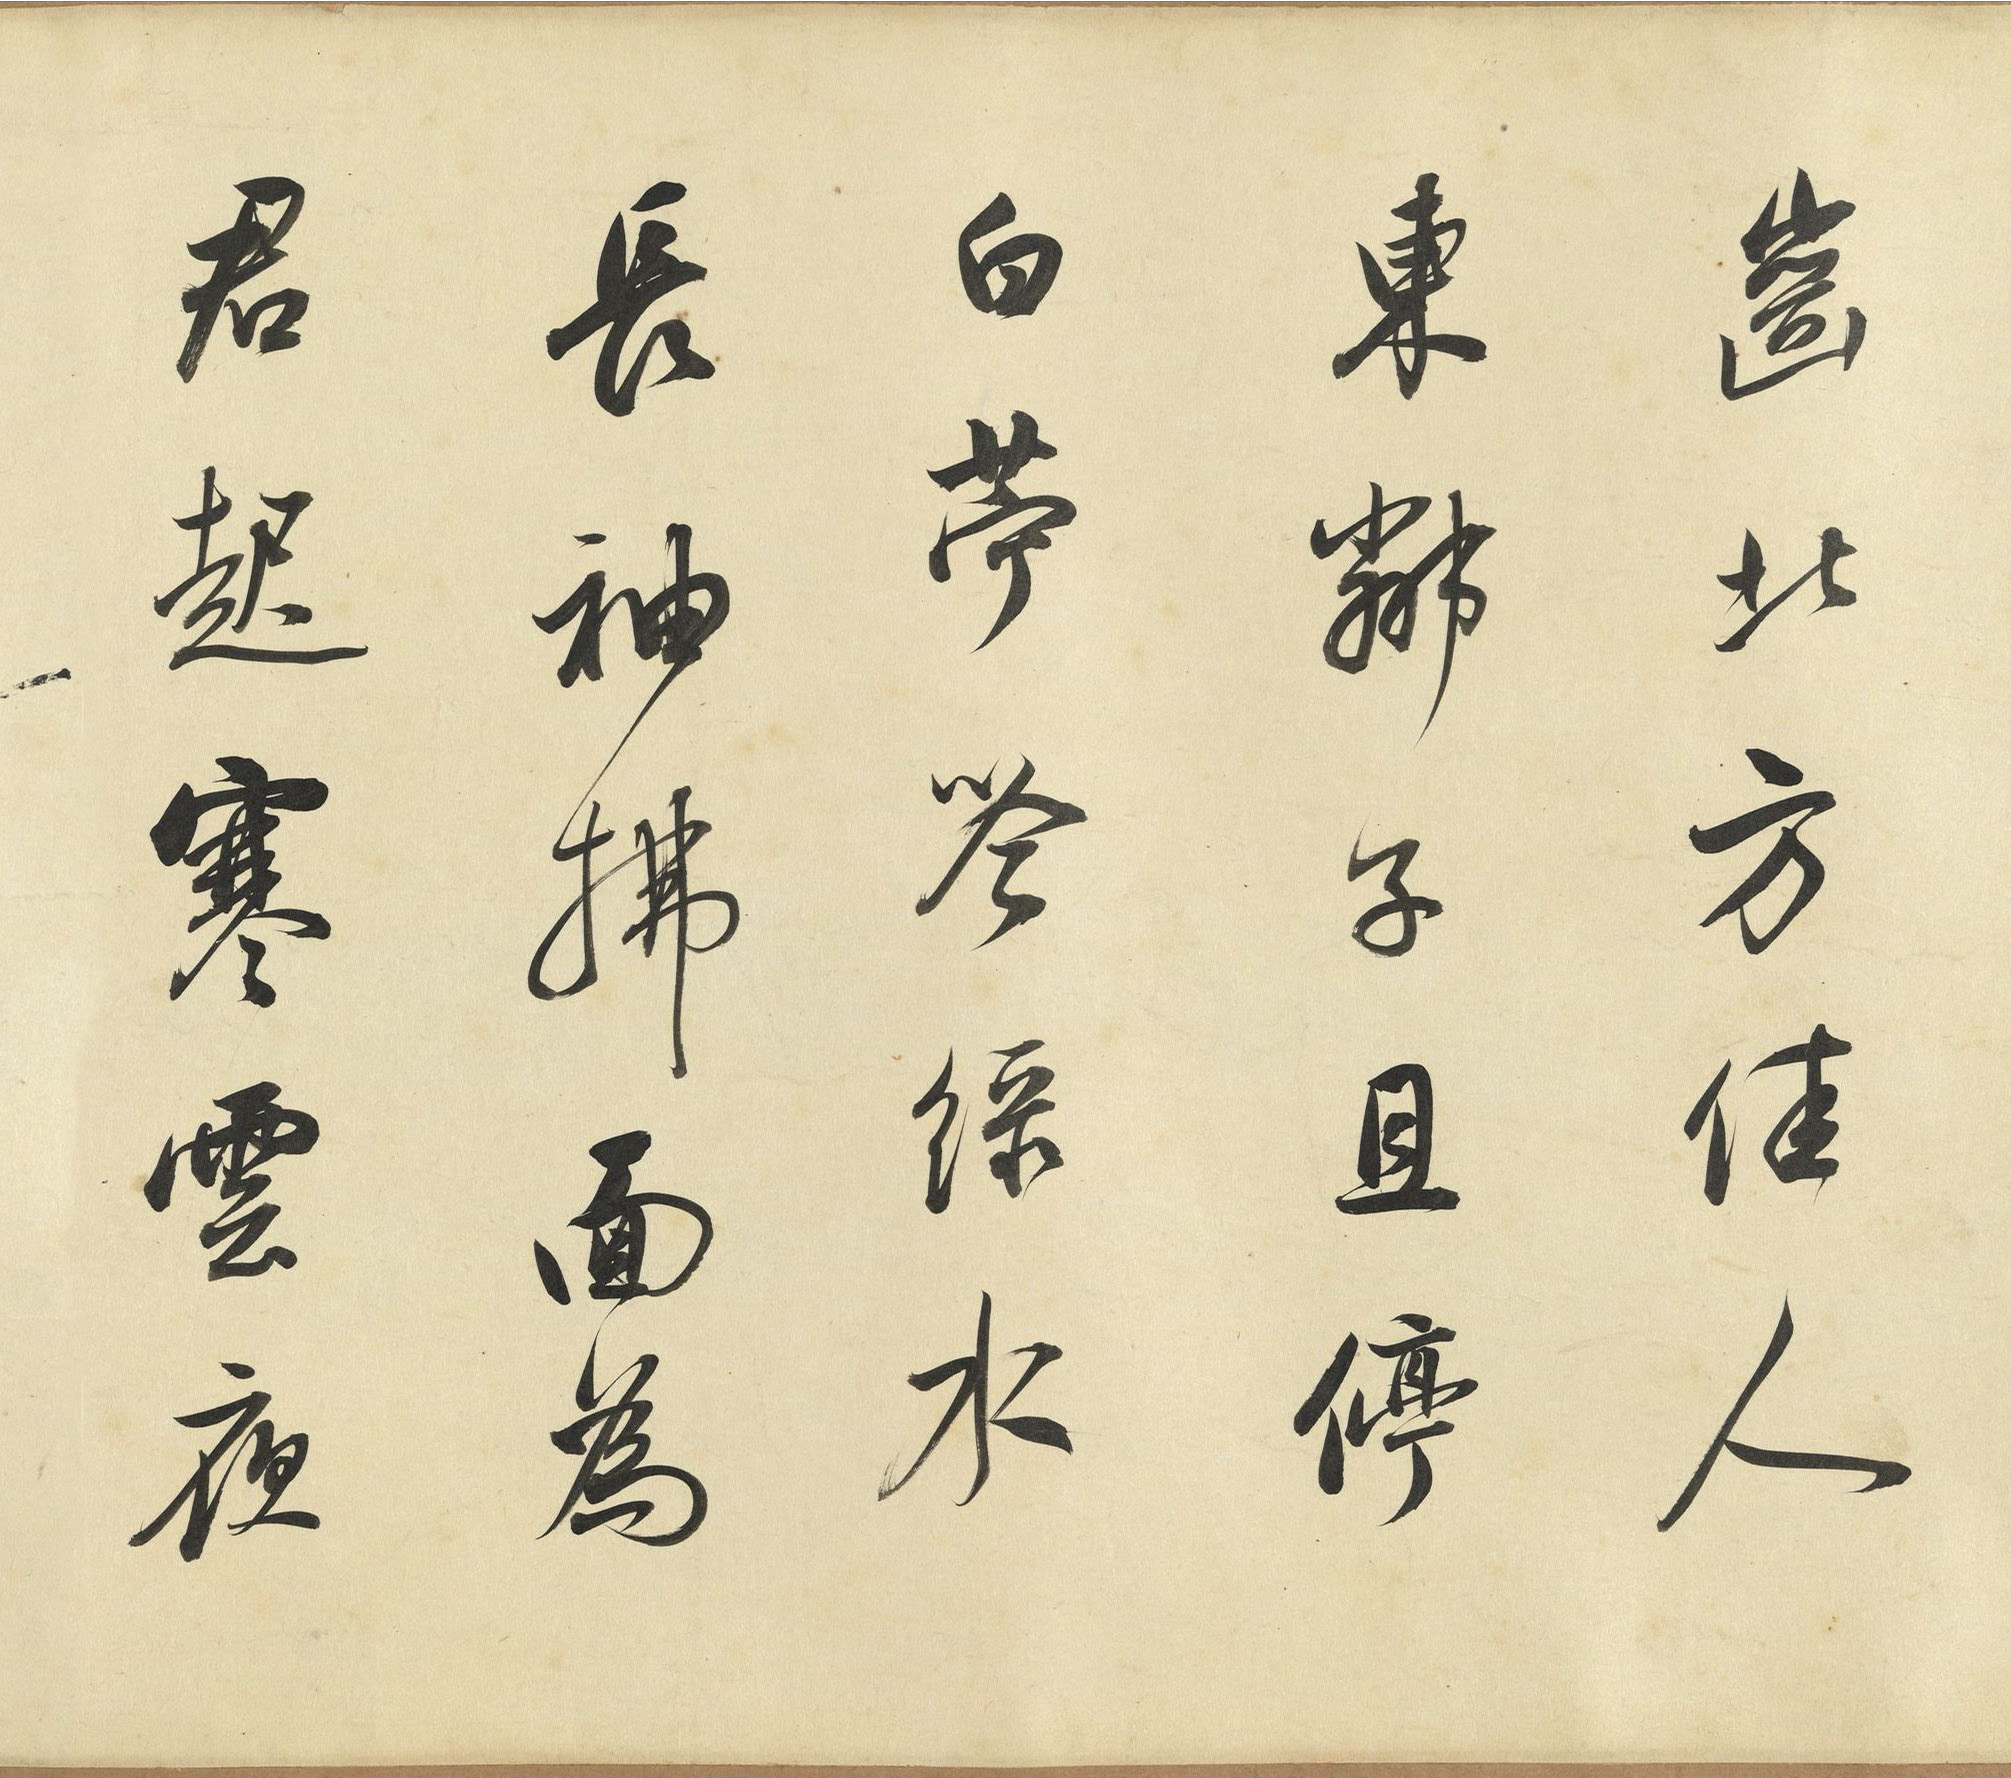 齒北方佳人
東鄰子且停
白苧吟綠水
長袖拂面為
君起寒雲夜